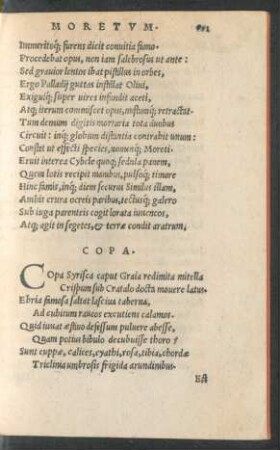 MORETVM.
Immeritoq; furens dicit conuitia fumo.
Procedebat opus, non iam salebrosus ut ante:
Sed grauior lentos ibat pistillus in orbes,
Ergo Palladij guttas instillat Oliui,
Exiguiq; super uires infundit aceti,
Atq; iterum commiscet opus, mistumq; retractat
Tum demum digitis mortaria tota duobus
Circuit: inq; globum distantia contrahit unum:
Constet ut effecti species, nomenq; Moreti.
Eruit interea Cybele quoq; sedula panem,
Quem lotis recipit manibus, pulsoq; timore
Hinc famis, inq; diem securus Similus illam,
Ambit crura ocreis paribus, tectusq; galero
Sub iuga parenteis cogit lorata iuuencos,
Atq; agit in segetes, & terræ condit aratrum.
COPA.
Copa Syrisca caput Graia redimita mitella
Crispum sub Crotalo docta mouere latus.
Ebria fumosa saltat lasciua taberna,
Ad cubitum raucos excutiens calamos.
Quid iuuat æstiuo defessum puluere abesse,
Quam potius bibulo decubuisse thoro?
Sunt cuppæ, calices, cyathi, rosa, tibia, chordæ
Triclinia umbrosis frigida arundinibus.
Est